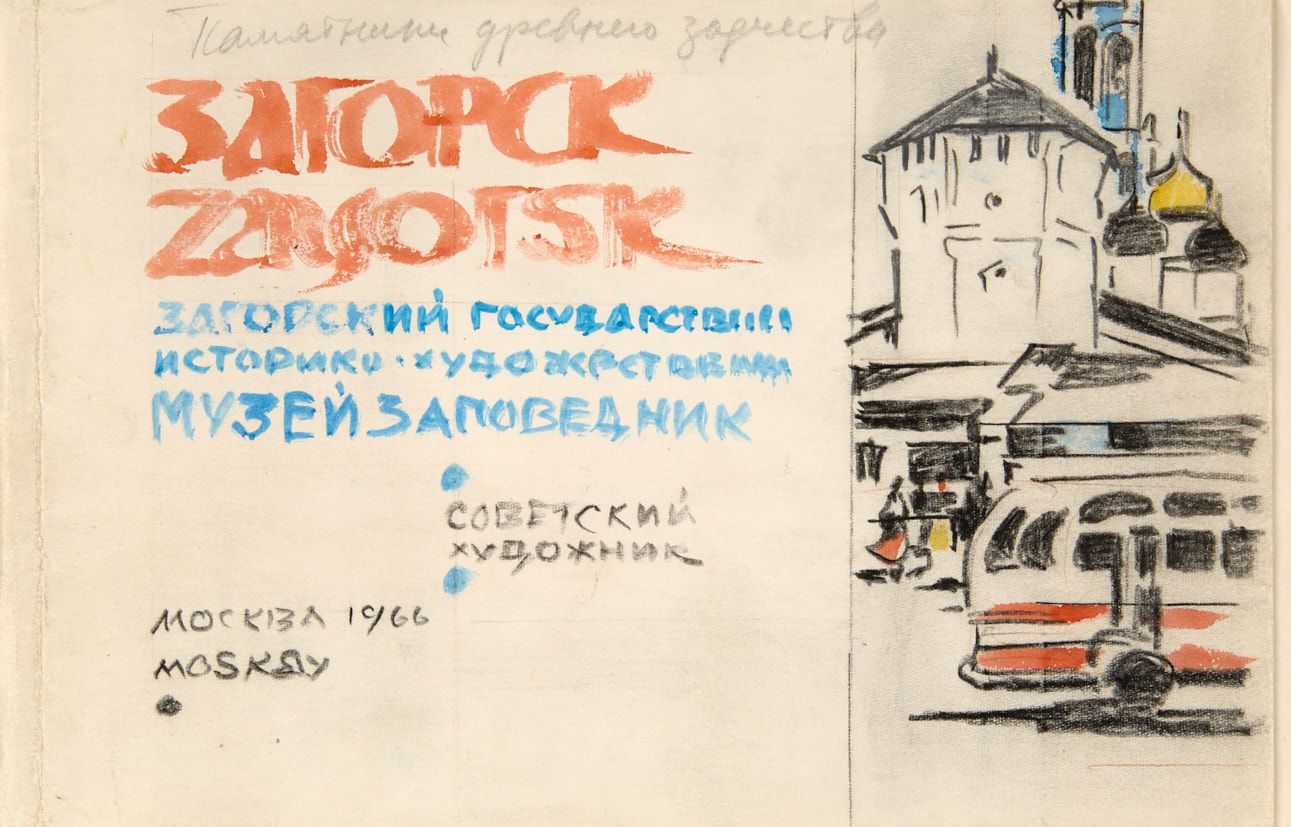 Памятники древнего зодчества
ЗАГОРСК
ZAGORSK
ЗАГОРСКИЙ ГОСУДАРСТВЕНН
ИСТОРИКО-ХУДОЖЕСТВЕНН
МУЗЕЙ ЗАПОВЕДНИК
СОВЕТСКИЙ
ХУДОЖНИК
МОСКВА 1966